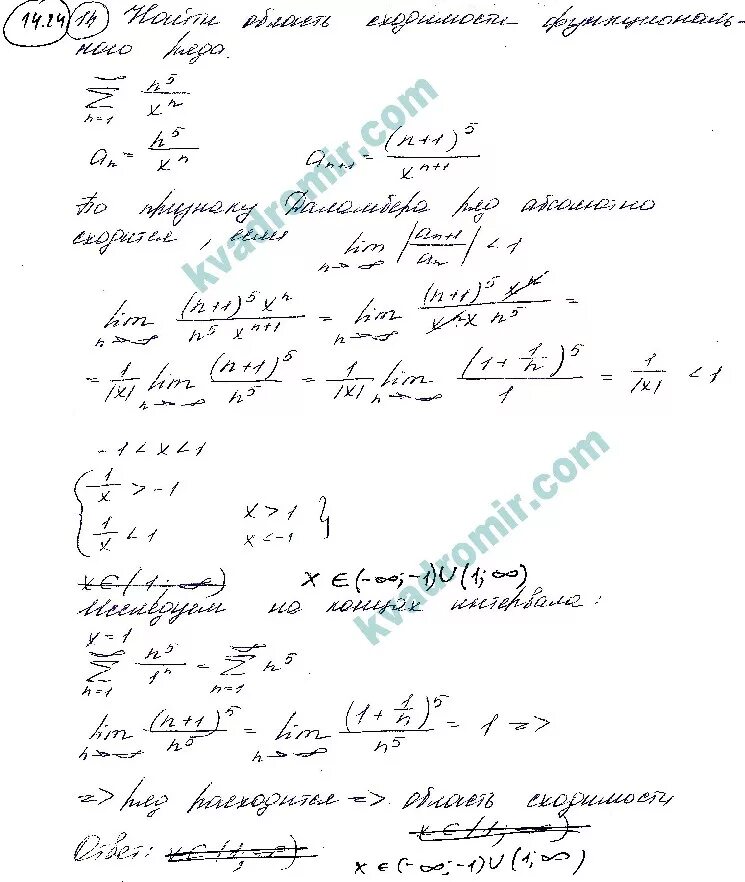 14.24 14 Найти область сходимости функциональ-
ного ряда.
∑ n=1 ∞ n^5 / x^n
a_n = n^5 / x^n a_{n+1} = (n+1)^5 / x^{n+1}
По признаку Даламбера ряд абсолютно
сходится, если lim n→∞ |a_{n+1} / a_n| < 1
lim n→∞ (n+1)^5 x^n / n^5 x^{n+1} = lim n→∞ (n+1)^5 x^n / x^n·x n^5 =
= 1/|x| lim n→∞ (n+1)^5 / n^5 = 1/|x| lim n→∞ (1 + 1/n)^5 / 1 = 1/|x| < 1
-1 < x < 1
{ 1/x > -1
1/x < 1 x > 1
x < -1 }
x ∈ (1; ∞) x ∈ (-∞; -1) ∪ (1; ∞)
Исследуем на концах интервала:
x = 1
∑ n=1 ∞ n^5 / 1^n = ∑ n=1 ∞ n^5
lim n→∞ (n+1)^5 / n^5 = lim n→∞ (1 + 1/n)^5 / n^5 = 1 =>
=> ряд расходится => область сходимости
x ∈ (1; ∞)
Ответ: x ∈ (1; ∞) x ∈ (-∞; -1) ∪ (1; ∞)
kvadromir.com
kvadromir.com